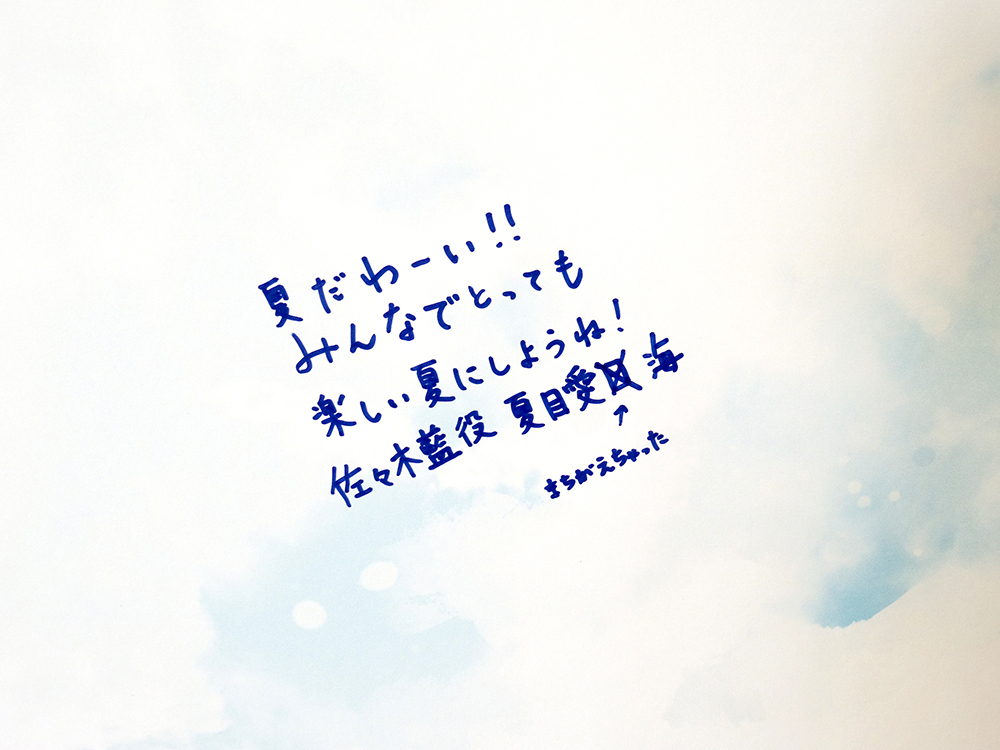 夏だわーい!!
みんなでとっても
楽しい夏にしようね!
佐々木藍役 夏目愛海
↗
まちがえちゃった